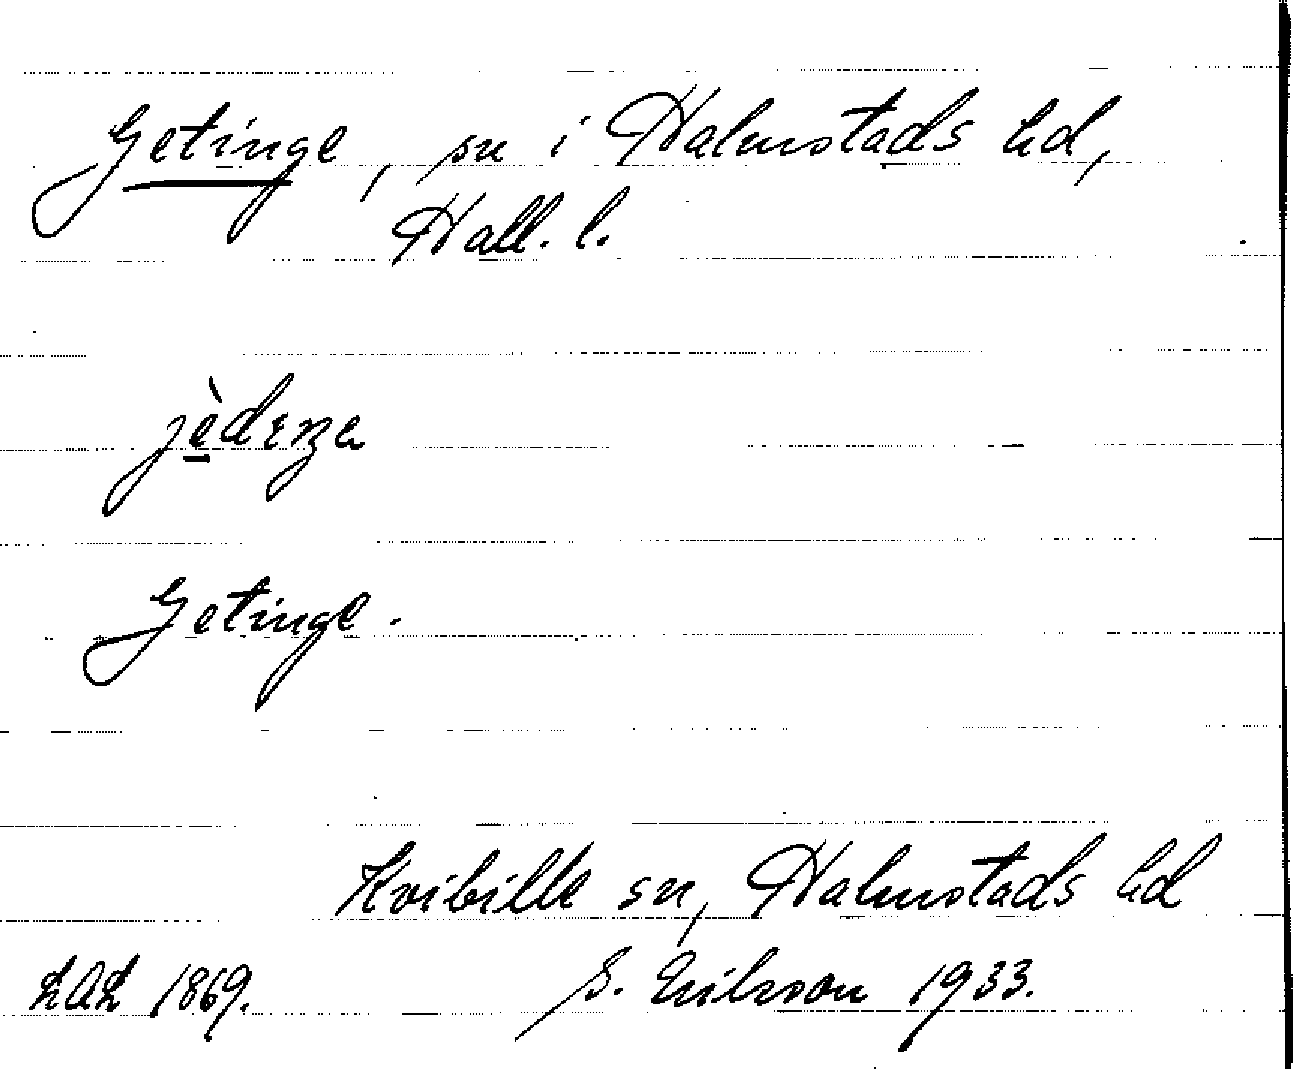 Getinge, sn i Halmstads hd,
Hall. l.
Getinge.
Kvibille sn, Halmstads hd
LAL 1869. S. Erilsson 1933.